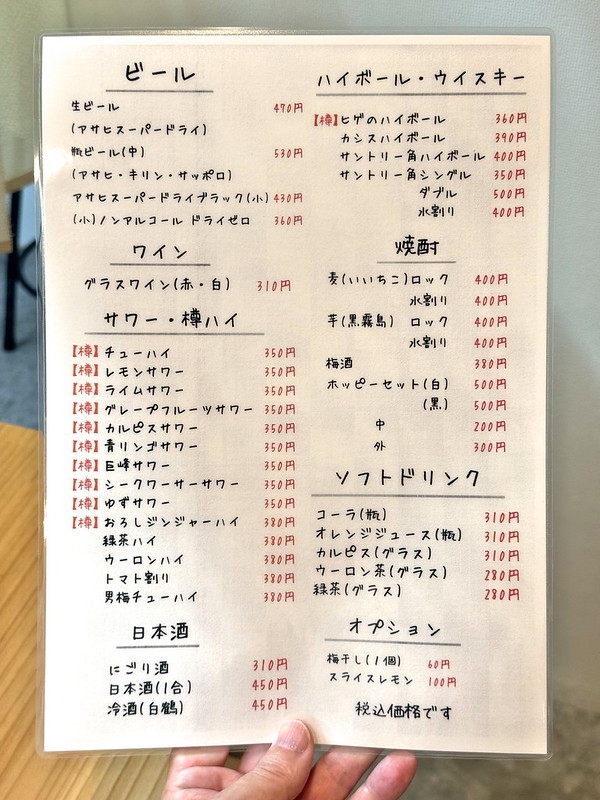 ビール
生ビール 470円
(アサヒスーパードライ)
瓶ビール(中) 530円
(アサヒ・キリン・サッポロ)
アサヒスーパードライブラック(小) 430円
(小)ノンアルコール ドライゼロ 360円
ワイン
グラスワイン(赤・白) 310円
サワー・樽ハイ
【樽】チューハイ 350円
【樽】レモンサワー 350円
【樽】ライムサワー 350円
【樽】グレープフルーツサワー 350円
【樽】カルピスサワー 350円
【樽】青リンゴサワー 350円
【樽】巨峰サワー 350円
【樽】シークワーサーサワー 350円
【樽】ゆずサワー 350円
【樽】おろしジンジャーハイ 380円
緑茶ハイ 380円
ウーロンハイ 380円
トマト割り 380円
男梅チューハイ 380円
日本酒
にごり酒 310円
日本酒(1合) 450円
冷酒(白鶴) 450円
ハイボール・ウイスキー
【樽】ヒゲのハイボール 360円
カシスハイボール 390円
サントリー角ハイボール 400円
サントリー角シングル 350円
ダブル 500円
水割り 400円
焼酎
麦(いいちこ)ロック 400円
水割り 400円
芋(黒霧島) ロック 400円
水割り 400円
梅酒 380円
ホッピーセット(白) 500円
(黒) 500円
中 200円
外 300円
ソフトドリンク
コーラ(瓶) 310円
オレンジジュース(瓶) 310円
カルピス(グラス) 310円
ウーロン茶(グラス) 280円
緑茶(グラス) 280円
オプション
梅干し(1個) 60円
スライスレモン 100円
税込価格です